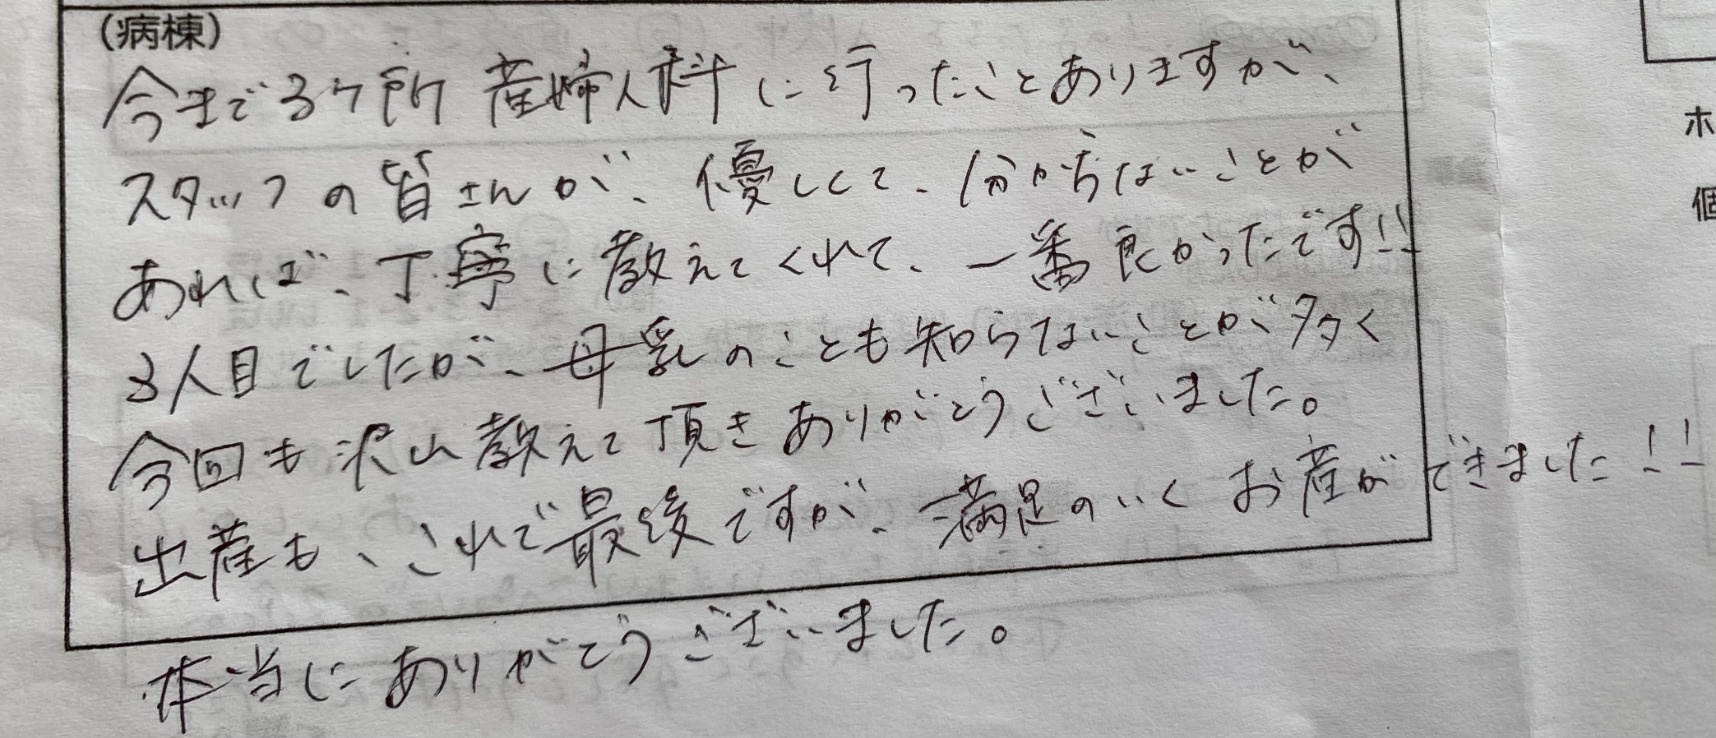 (病棟)
今まで3ヶ所 産婦人科に行ったことありますが、
スタッフの皆さんが、優しくて、分からないことが
あれば、丁寧に教えてくれて、一番良かったです!!
3人目でしたが、母乳のことも知らないことが多く
今回も沢山教えて頂きありがとうございました。
出産も、これで最後ですが、満足のいくお産ができました!!
本当にありがとうございました。
ホ
個